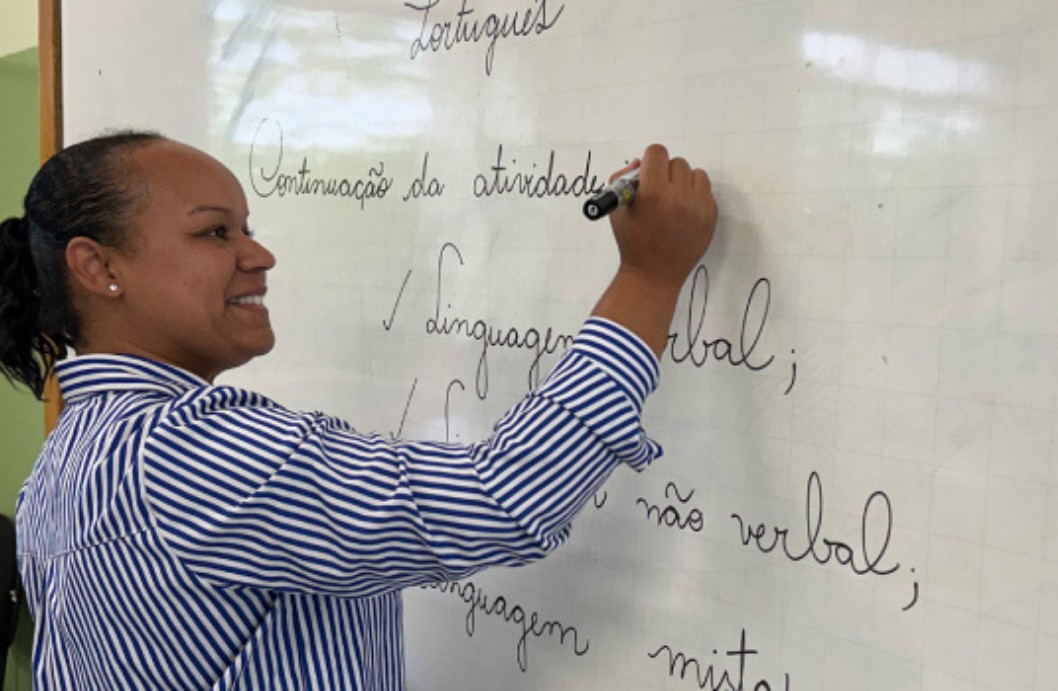 Português
Continuação da atividade
✓ Linguagem verbal;
✓ não verbal;
Linguagem mista